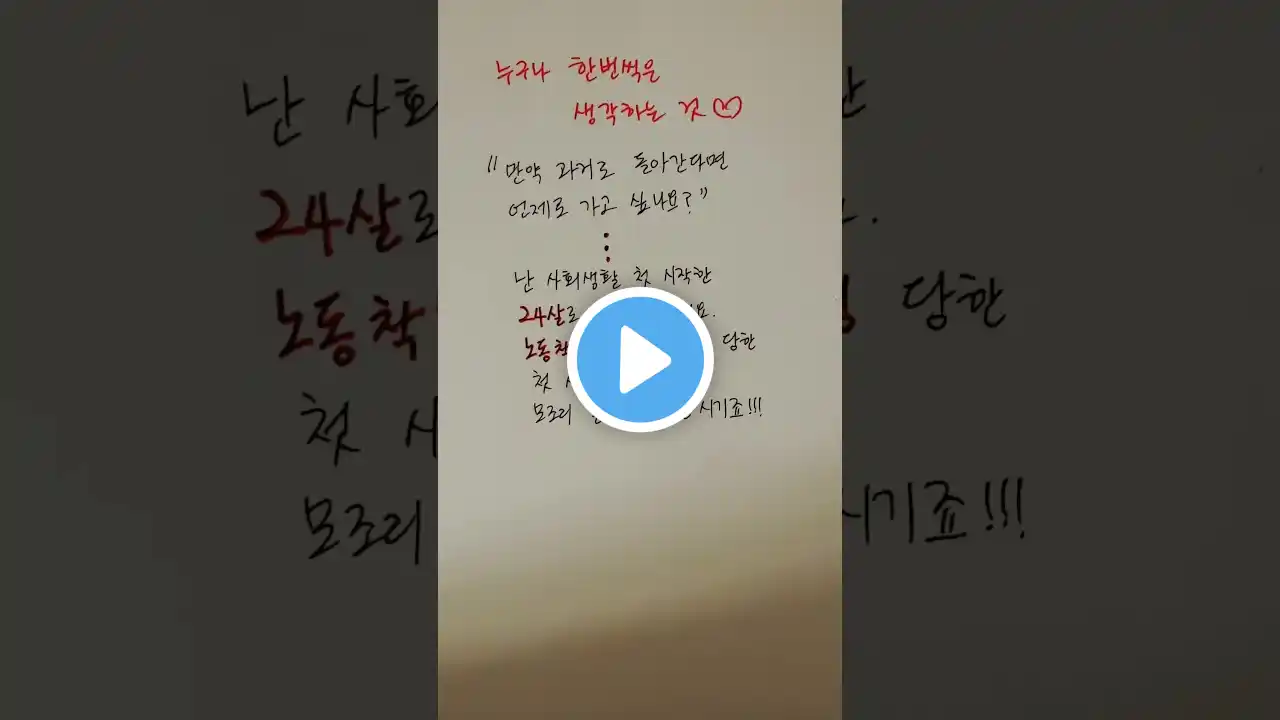 누구나 한번씩은
생각하는 것♡
"만약 과거로 돌아간다면
언제로 가고 싶나요?"
난 사회생활 첫 시작한
24살로
노동착 당한
첫
모조리 시기죠!!!